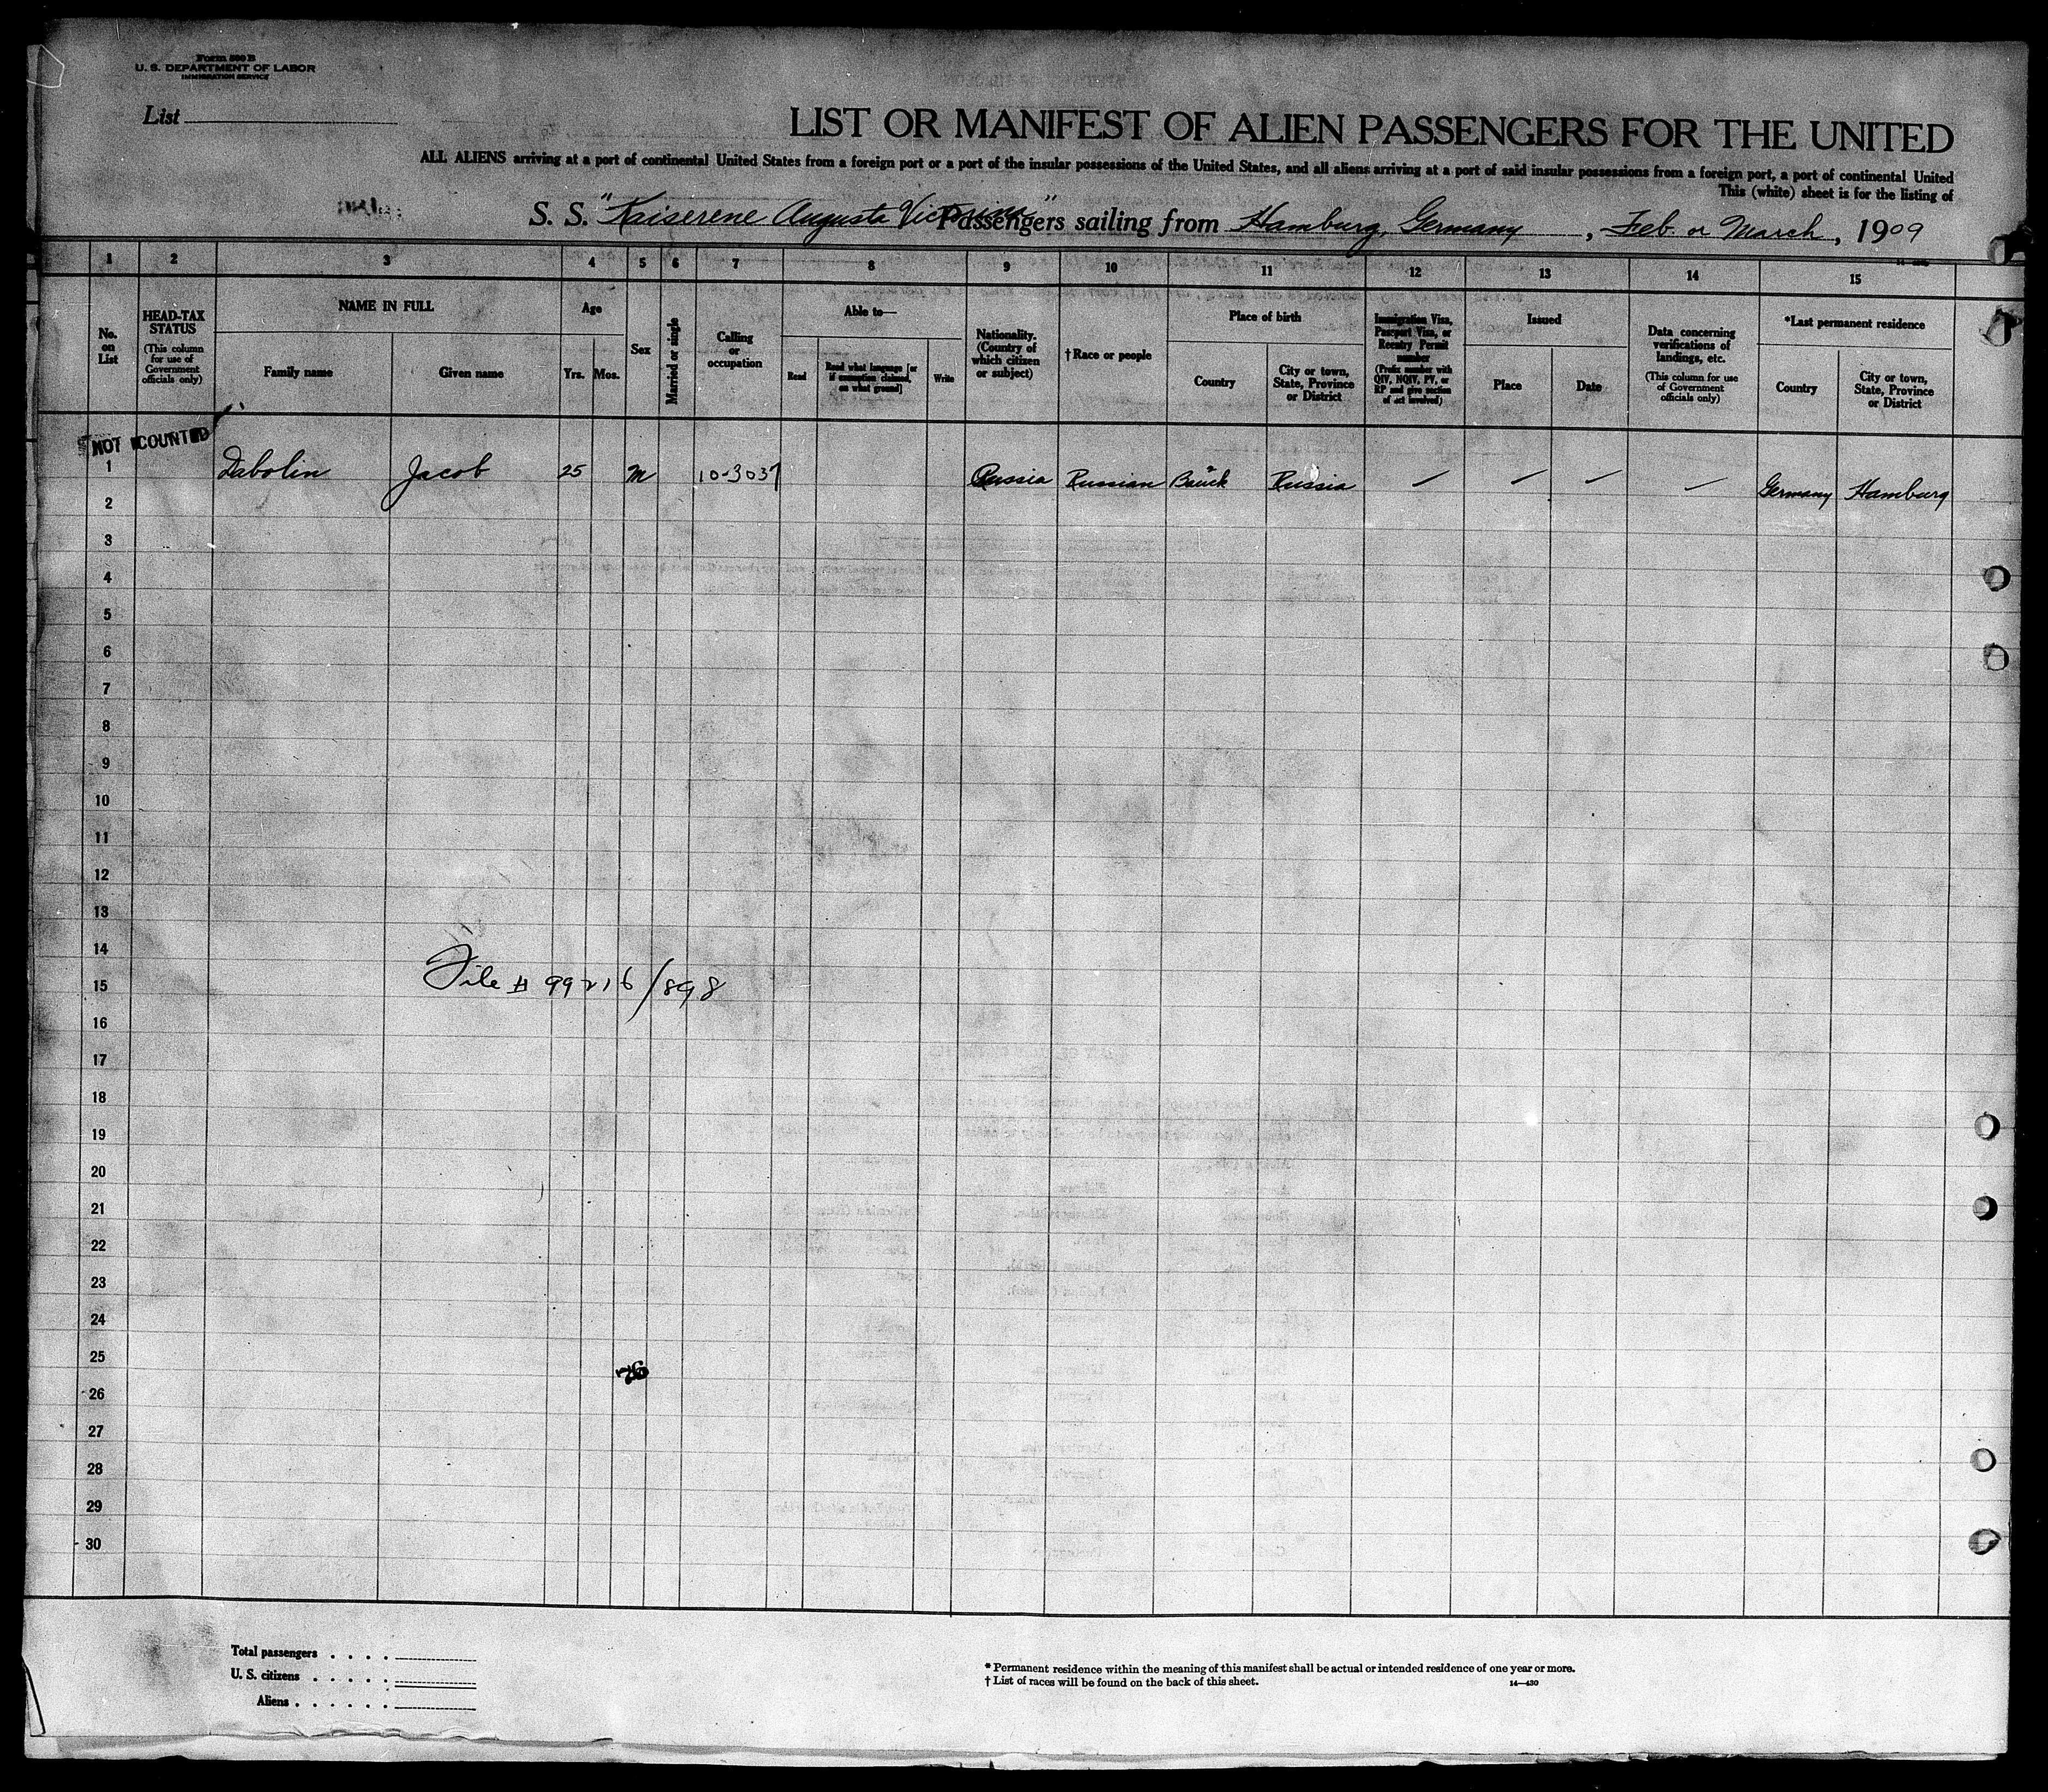 Form 500 B
U. S. DEPARTMENT OF LABOR
IMMIGRATION SERVICE
List
LIST OR MANIFEST OF ALIEN PASSENGERS FOR THE UNITED
ALL ALIENS arriving at a port of continental United States from a foreign port or a port of the insular possessions of the United States, and all aliens arriving at a port of said insular possessions from a foreign port, a port of continental United
This (white) sheet is for the listing of
S. S. "Kaiserene Augusta Victoria" Passengers sailing from Hamburg, Germany, Feb. or March, 1909
1 2 3 4 5 6 7 8 9 10 11 12 13 14 15
No. on List
HEAD-TAX STATUS
(This column for use of Government officials only)
NAME IN FULL
Family name
Given name
Age
Yrs.
Mos.
Sex
Married or single
Calling or occupation
Able to—
Read
Read what language [or if exemption claimed, on what ground]
Write
Nationality. (Country of which citizen or subject)
†Race or people
Place of birth
Country
City or town, State, Province or District
Immigration Visa, Passport Visa, or Reentry Permit number
(Prefix number with QIV, NQIV, PV, or RP and give section of act involved)
Issued
Place
Date
Data concerning verifications of landings, etc.
(This column for use of Government officials only)
*Last permanent residence
Country
City or town, State, Province or District
NOT COUNTED
1 Dabolin Jacob 25 M 10-3037 Russia Russian Russia — — — — Germany Hamburg
2
3
4
5
6
7
8
9
10
11
12
13
14
File # 99216/898
15
16
17
18
19
20
21
22
23
24
25
26
27
28
29
30
Total passengers . . . .
U. S. citizens . . . . .
Aliens . . . . . .
* Permanent residence within the meaning of this manifest shall be actual or intended residence of one year or more.
† List of races will be found on the back of this sheet.
14—430